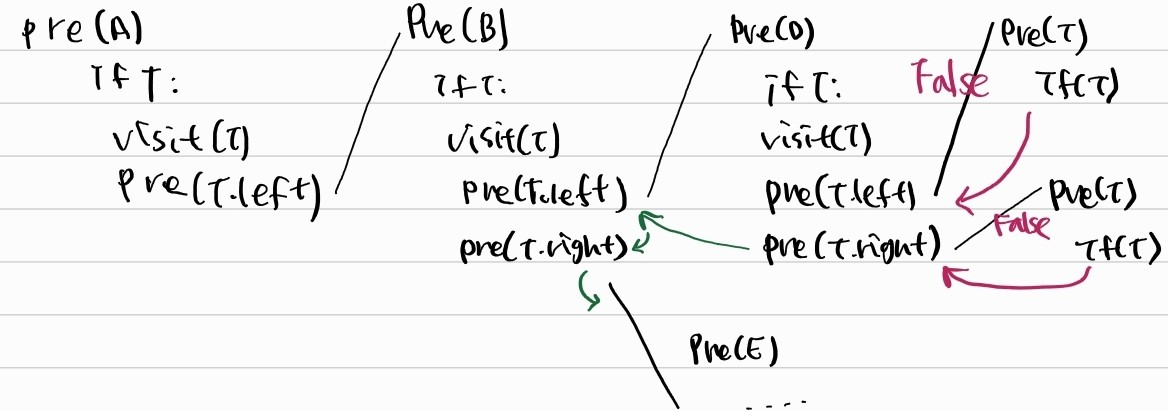 pre(A)
if T:
visit(T)
pre(T.left)
Pre(B)
if T:
visit(T)
pre(T.left)
pre(T.right)
Pre(D)
if T:
visit(T)
pre(T.left)
pre(T.right)
Pre(T)
False
if(T)
Pre(T)
False
if(T)
Pre(E)
....